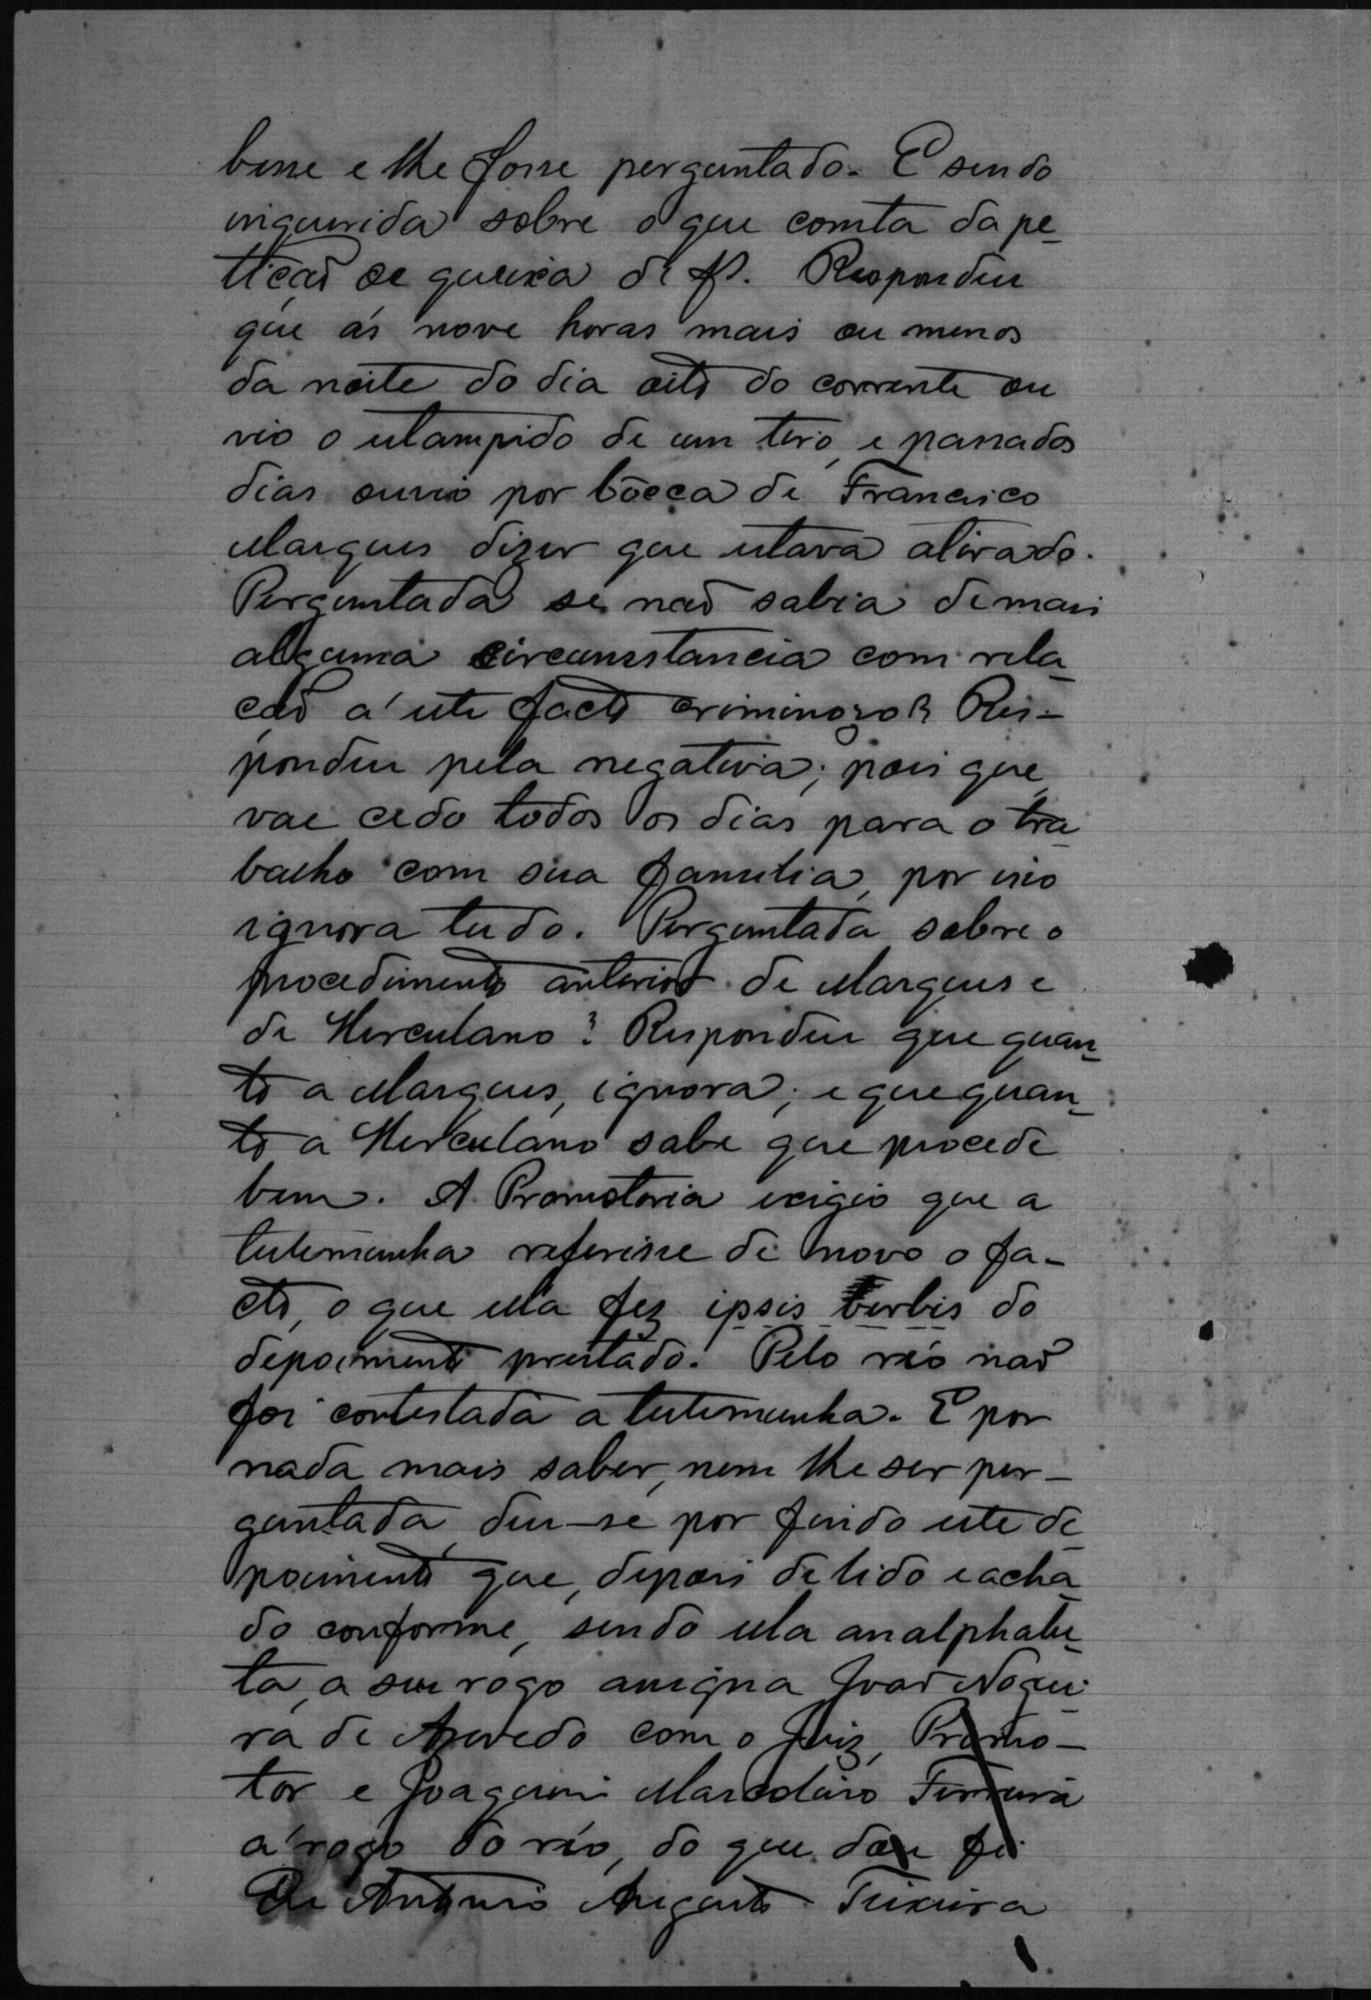 besse e lhe fosse perguntado. E sendo
inquirida sobre o que consta da pe-
tição de queixa de fs. Respondeu
que ás nove horas mais ou menos
da noite do dia oito do corrente ou
vio o estampido de um tiro, e passados
dias ouvio por bôcca de Francisco
Marques dizer que estava atirado.
Perguntada se não sabia de mais
alguma circumstancia com rela-
ção a' este facto criminozo? Res-
pondeu pela negativa; pois que
vae cedo todos os dias para o tra-
balho com sua familia, por isso
ignora tudo. Perguntada sobre o
procedimento anterior de Marques e
de Herculano? Respondeu que quan-
to a Marques, ignora; e que quan-
to a Herculano sabe que procede
bem. A Promotoria exigio que a
testemunha referisse de novo o fa-
cto, o que ella fez ipsis verbis do
depoimento prestado. Pelo réo não
foi contestada a testemunha. E por
nada mais saber, nem lhe ser per-
guntada, deu-se por findo este de-
poimento que, depois de lido e acha-
do conforme, sendo ella analphabe-
ta, a seu rogo assigna João Noguei-
ra de Azevedo com o Juiz, Promo-
tor e Joaquim Ferreira
a' rogo do réo, do que dou fé.
Eu Antonio Augusto Teixeira